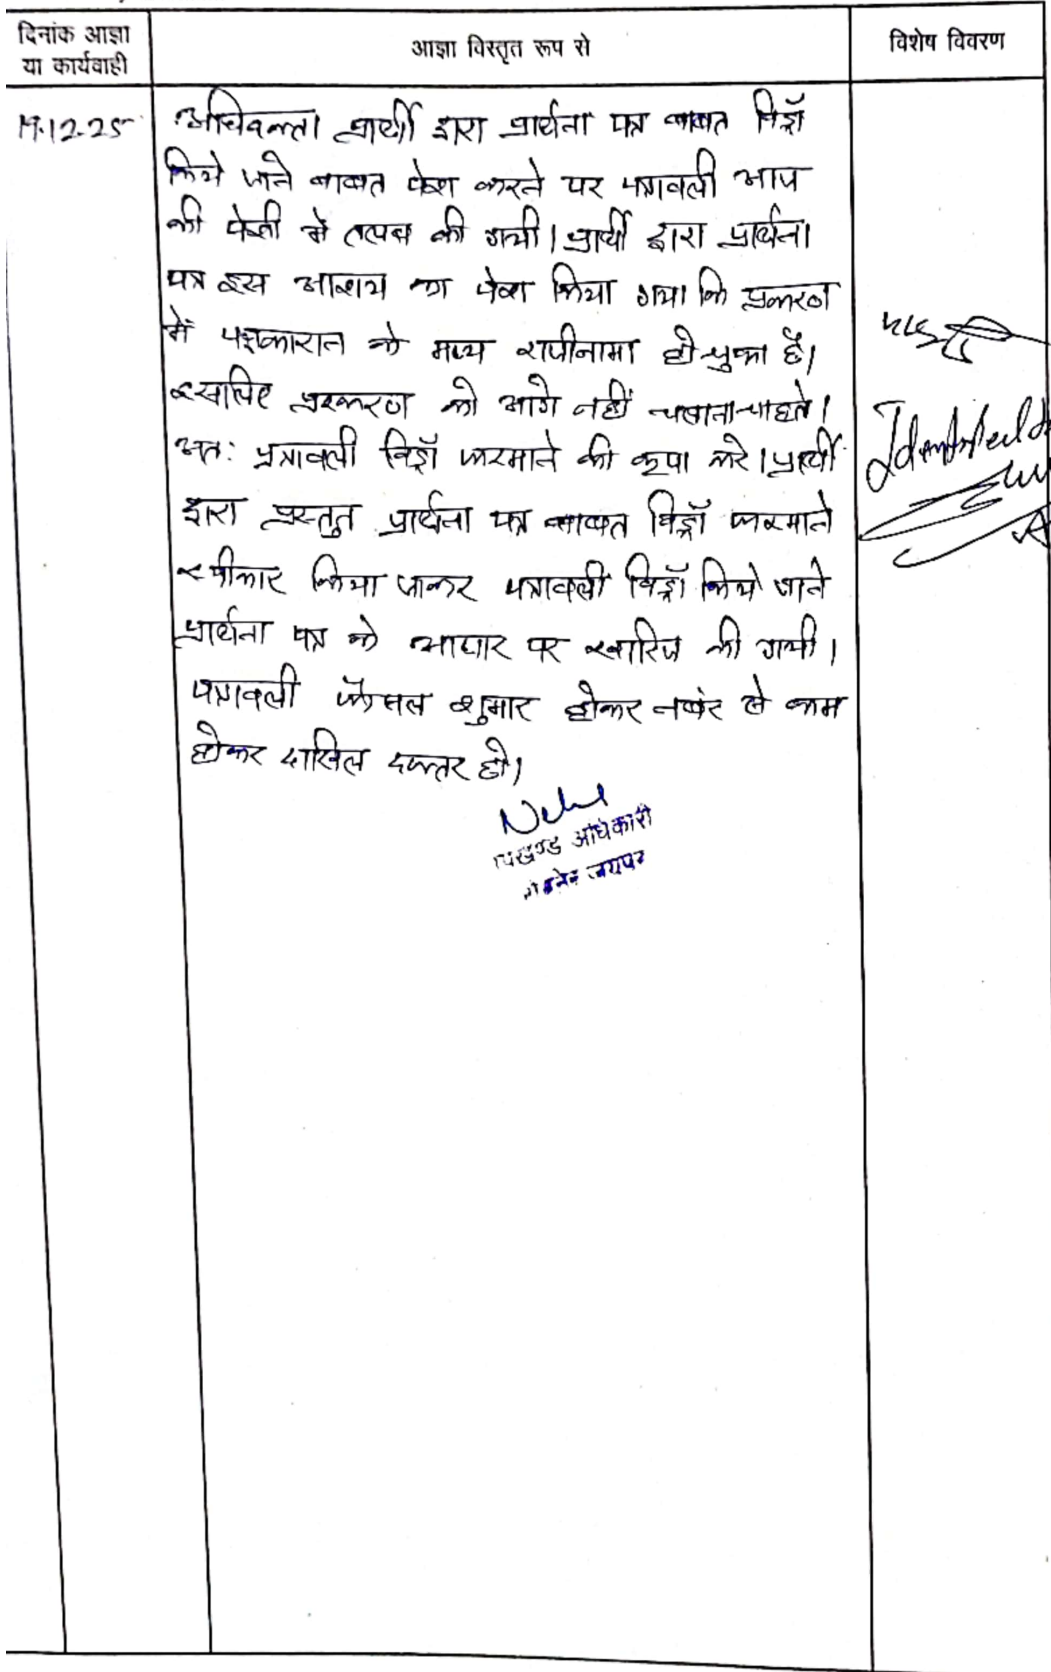 दिनांक आज्ञा
या कार्यवाही
आज्ञा विस्तृत रूप से
विशेष विवरण
19.12.25
अधिवक्ता प्रार्थी द्वारा प्रार्थना पत्र बाबत विड्रॉ
किये जाने बाबत पेश करने पर पत्रावली आज
की पेशी में तलब की गयी। प्रार्थी द्वारा प्रार्थना
पत्र इस आशय का पेश किया गया कि प्रकरण
में पक्षकारान के मध्य राजीनामा हो चुका है।
इसलिए प्रकरण को आगे नहीं चलाना चाहते।
अतः पत्रावली विड्रॉ फरमाने की कृपा करे। प्रार्थी
द्वारा प्रस्तुत प्रार्थना पत्र बाबत विड्रॉ फरमाने
स्वीकार किया जाकर पत्रावली विड्रॉ किये जाने
प्रार्थना पत्र के आधार पर खारिज की गयी।
पत्रावली फैसल शुमार होकर नम्बर से कम
होकर दाखिल दफ्तर हो।
Identified
उपखण्ड अधिकारी
जयपुर